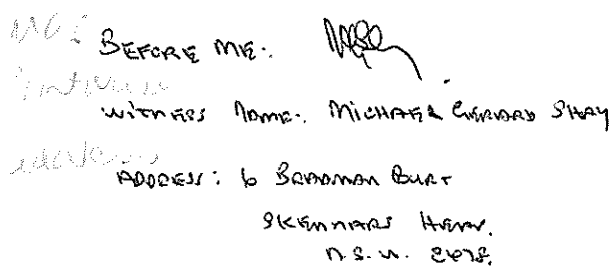 BEFORE ME:
WITNESS NAME: MICHAEL GERARD SHAY
ADDRESS: 6 BRADMAN
SKENNARS HEAD.
N.S.W. 2478.